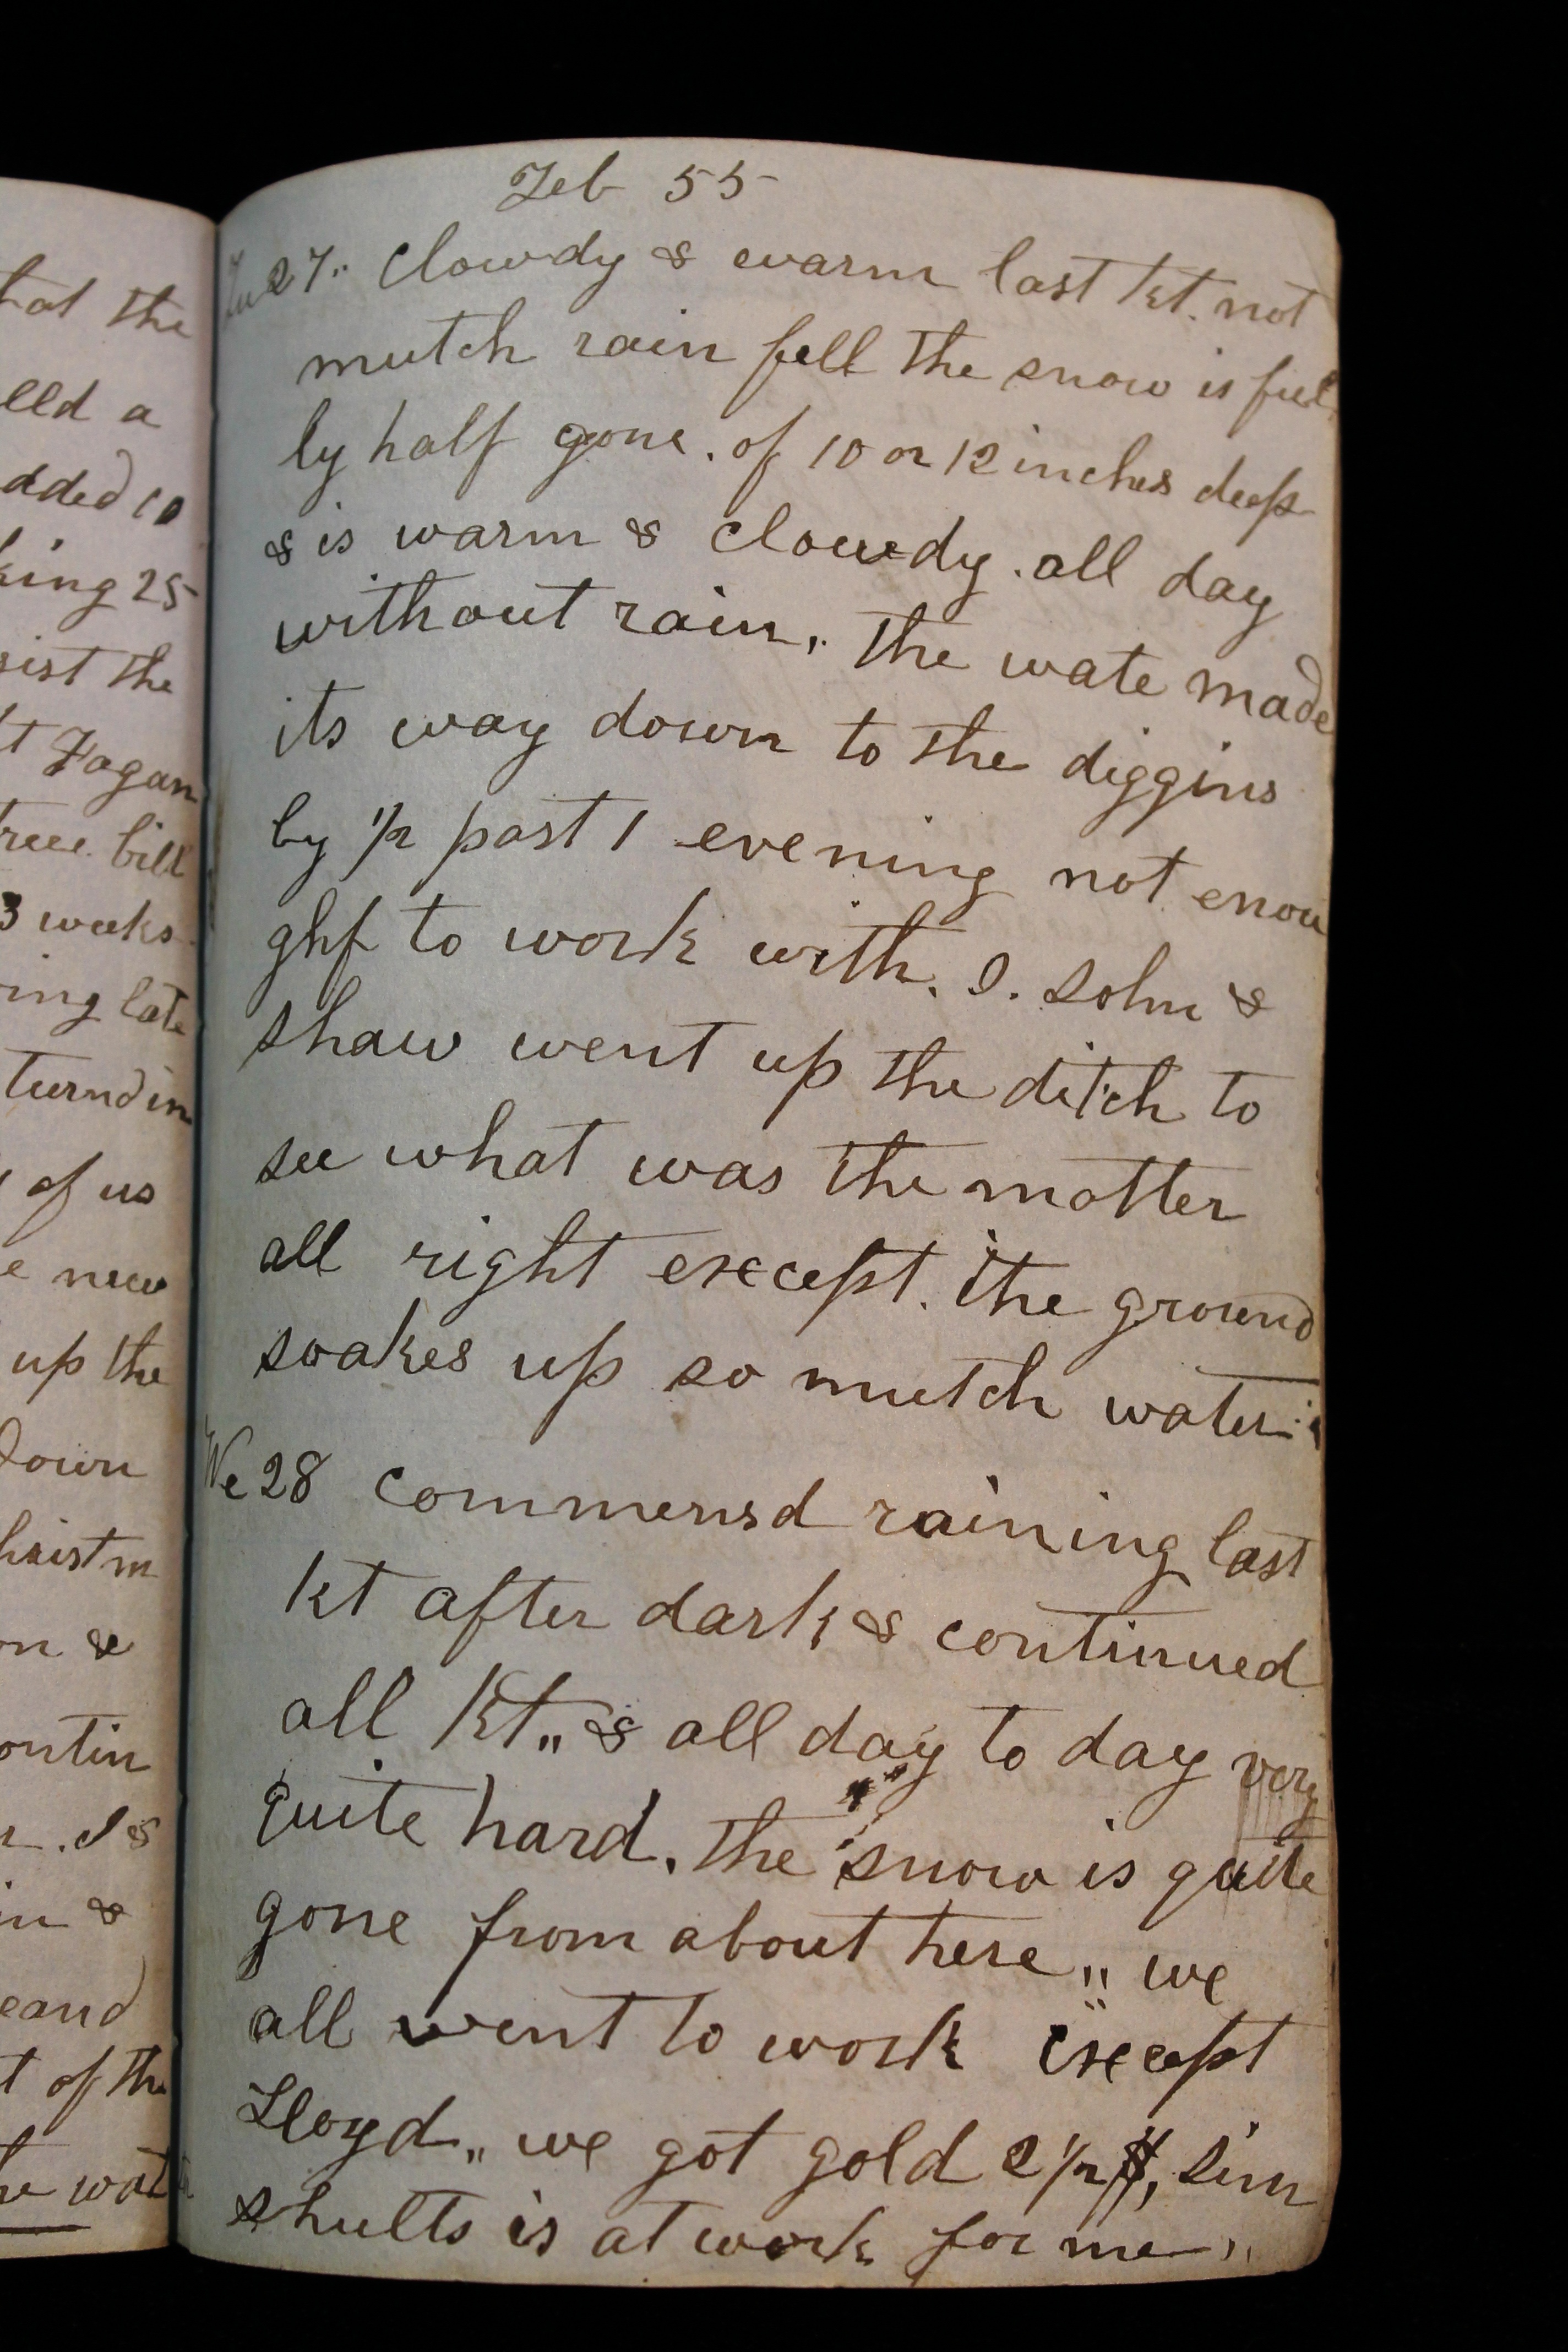 hat the
elld a
dded 10
king 25
sist the
t Fagan
bill
3 weeks
ring late
turnd in
of us
e new
up the
down
hristm
on &
ontin
r. I &
in &
eand
t of the
he wat
Feb 55
Tu 27.. Clowdy & warm last kt. not
mutch rain fell the snow is ful
ly half gone. of 10 or 12 inches deep
& is warm & Clowdy. all day
without rain,. the wate made
its way down to the diggins
by 1/2 past 1 evening not enou
ghf to work with. I. John &
Shaw went up the ditch to
see what was the matter
all right except. the ground
soakes up so mutch water.
We 28 Commensd raining last
kt after dark & continued
all kt,, & all day to day very
quite hard. the snow is quite
gone from about here,, we
all went to work except
Lloyd,, we got gold 2 1/2 $, Sim
Shults is at work for me,,